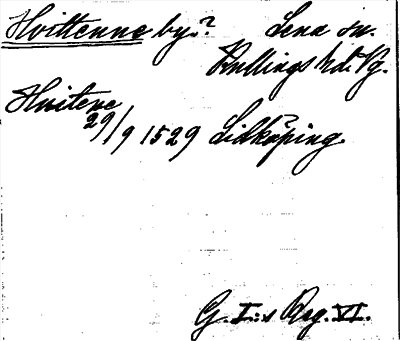 Hvittenne by.? Lena sn.
Kullings hd. Vg.
Hvitene
29/9 1529 Lidköping.
G. I:s Reg. VI.